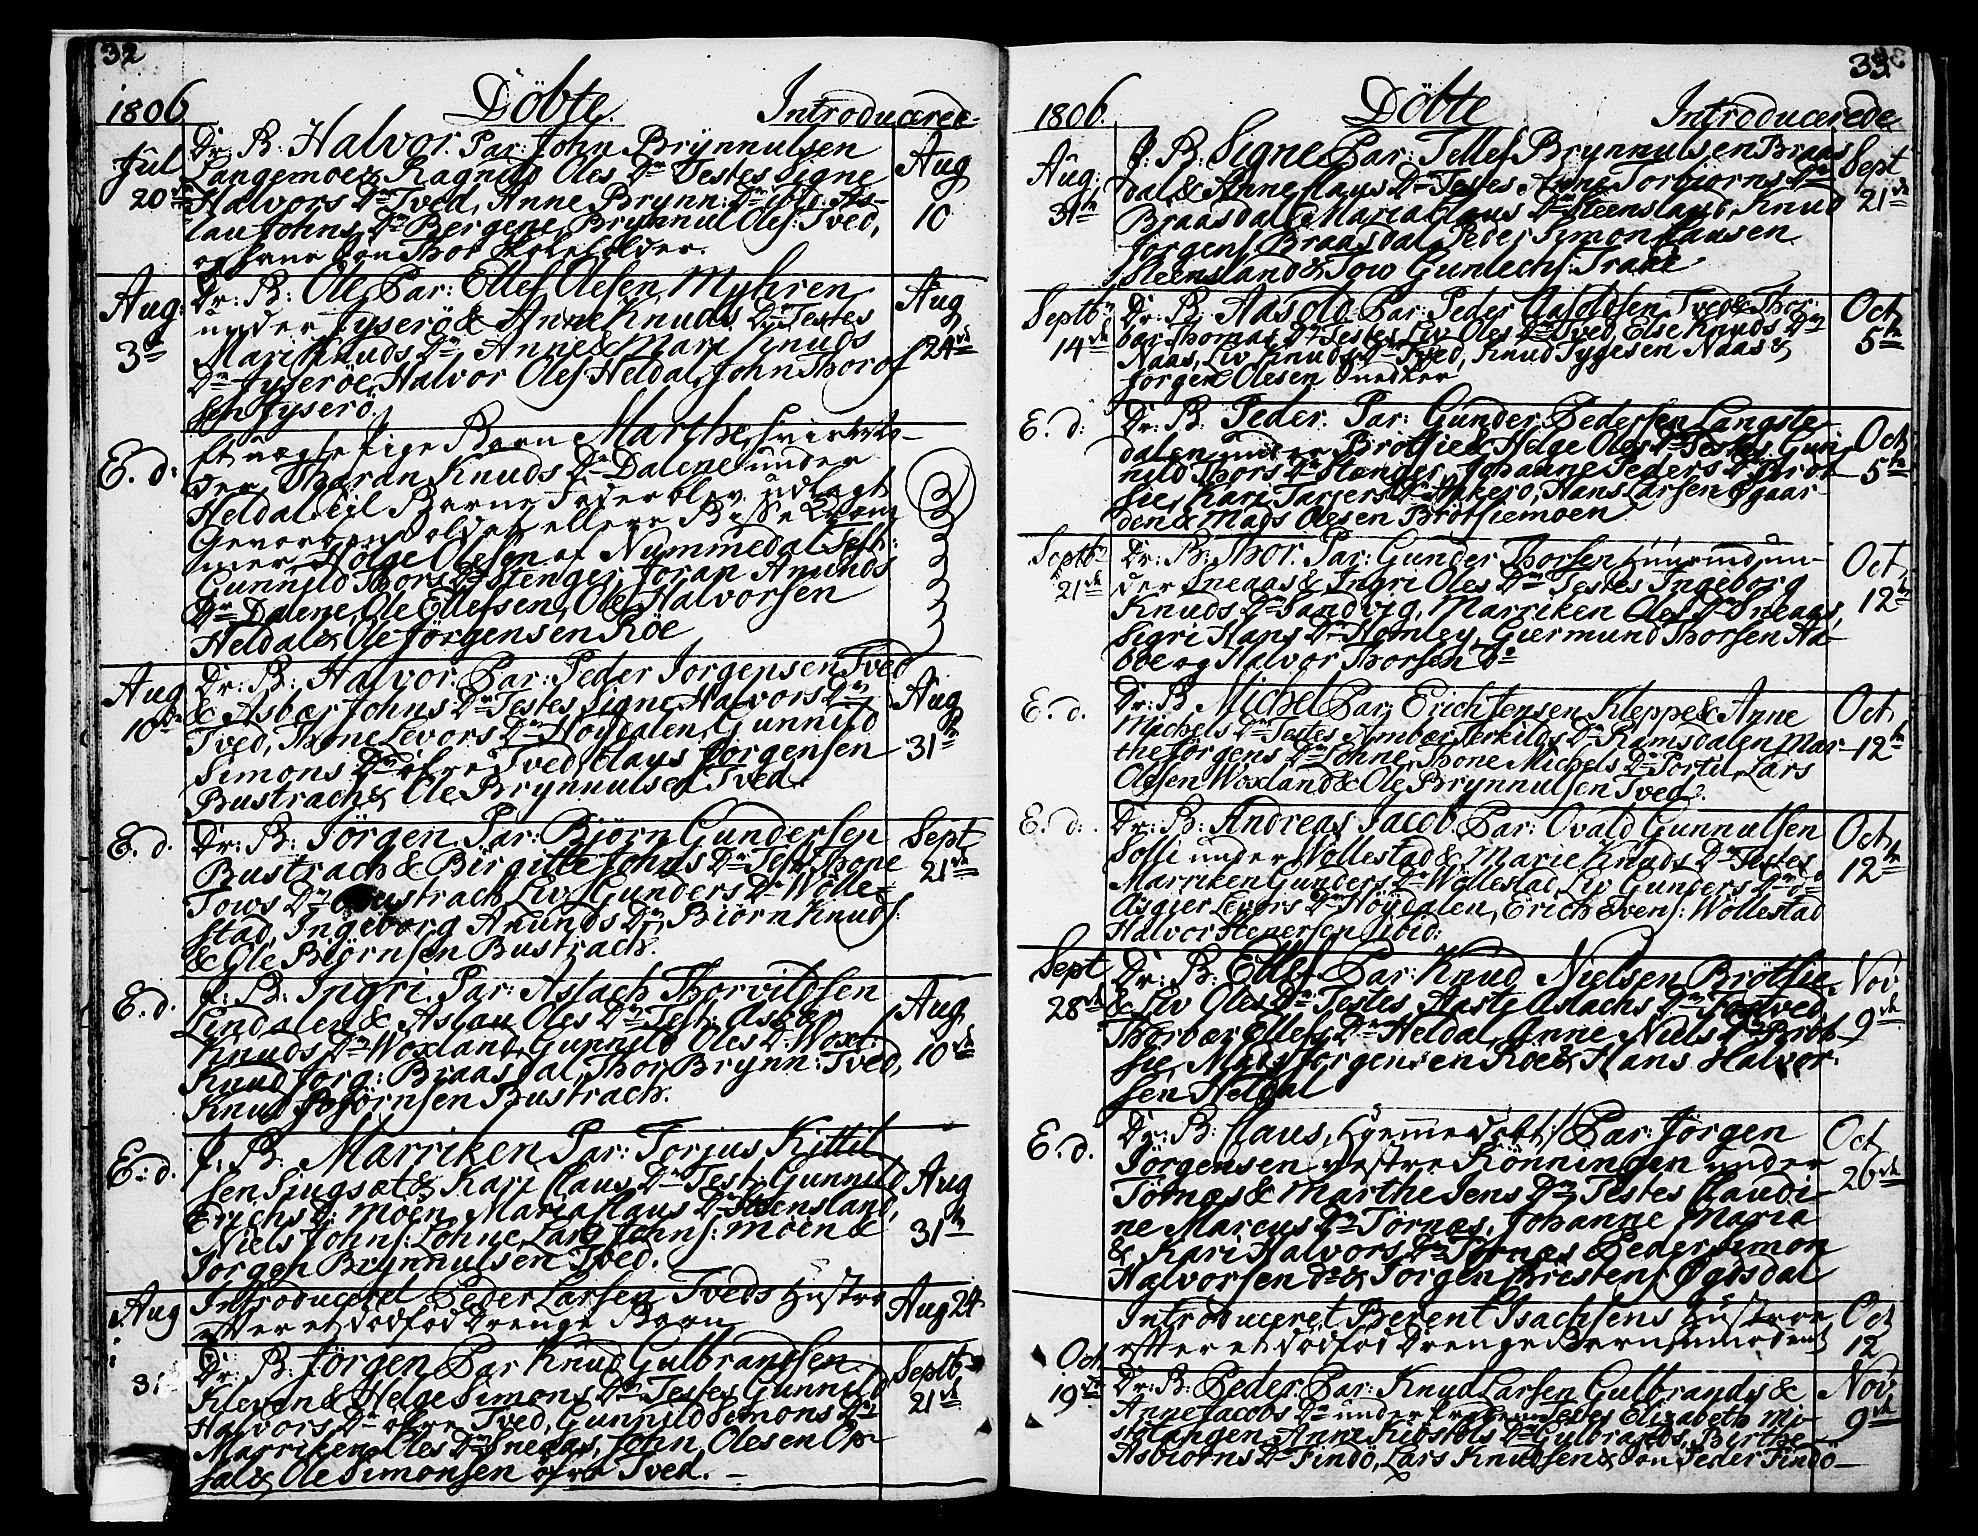 32
1806 Döbte. Introducerede
Jul 20de
Dr: B: Halvor. Par: John Brynnulsen
Langemoe & Ragnild Oles Dr Testes Signe
Halvors Dr Tved, Anne Brynn: Dr ibid: As-
lau Johns Dr Bergene, Brynnul Oles: Tved,
og hans Søn Thor Skoleholder.
Aug 10
Aug: 3de
Dr: B: Ole Par: Ellef Olesen Myhren
under Fyserö & Anne Knuds Dr Testes
Mari Knuds Dr, Anne & Mari Knuds
Dr Fyseröe, Halvor Oles: Heldal, John Thorof
sen Fyserö.
Aug 24de
E. d:
Et uægte Pige Barn Marthe, hvis Mo-
der Tharan Knuds Dr Dalene under
Heldal til Barne Fader blev udlagt
Gevorben Soldat ellers
Holge Olesen af Nummedal Test:
Gunnild Thors Dr Stenger, Joran Anunds
Dr Dalene, Ole Ellefsen, Ole Halvorsen
Heldal & Ole Jörgensen Roe
Aug 10de
Dr: B: Halvor. Par: Peder Jorgensen Tved
& Asbær Johns Dr Testes Signe Halvors Dr
Tved, Thone Levors Dr Höydalen, Gunnild
Simons Dr øfre Tved, Claus Jorgensen
Bustrach & Ole Brynnulsen Tved.
Aug 31te
E. d.
Dr: B: Jörgen. Par: Björn Gundersen
Bustrach & Birgitte Johns Dr Test: Thone
Tows Dr Bustrach, Liv Gunders Dr Wolle-
stad, Ingeborg Anunds Dr, Biörn Knuds:
& Ole Biörnsen Bustrach.
Sept 21de
E. d.
P: B: Ingri. Par: Aslach Thorvildsen
Lindalen & Aslau Oles Dr Test: Asgier
Knuds Dr Woxland, Gunnild Oles Dr Woxl:
Knud Jorg: Braasdal, Thor Brynn: Tved,
Knud Biörnsen Bustrach.
Aug 10de
E. d.
P: B: Marriken Par: Torjus Kittil
sen Siugsæt & Kari Claus Dr Test: Gunnild
Erichs Dr Moen, Maria Claus Dr Steensland,
Niels Johns: Lohne, Lars Johns: Moen &
Jorgen Brynnulsen Tved.
Aug 31te
Aug
Introduceret Peder Larsen Tveds Hustroe
efter et dødfød Drenge Barn
Aug 24
31
Dr: B: Jörgen Par Knud Gulbrandsen
Kleven & Helge Simons Dr Testes Gunnild
Halvors Dr øfre Tved, Gunnild Simons Dr
Marriken Oles Dr Sneaas, John Olesen Op-
sal & Ole Simonsen øfre Tved.
Septb 21de
33
1806 Döbte Introducerede
Aug: 31te
P: B: Signe Par: Tellef Brynnulsen Braas
dal & Anne Claus Dr Testes Anne Torbiorns Dr
Braasdal, Maria Claus Dr Steensland, Knud
Jorgens: Braasdal, Peder Simon Clausen
Steensland & Tow Gunlechs: Trane
Sept 21de
Septbr 14de
Dr: B: Aasold. Par: Peder Aasoldsen Tved & Thor-
bær Thomas Dr Testes Liv Oles Dr Tved, Else Knuds Dr
Naas, Liv Knuds Dr Tved, Knud Tygesen Naas &
Jorgen Olesen Snedker
Oct 5te
E. d:
Dr: B. Peder. Par: Gunder Pedersen Langste
dalen under Brötsie & Helge Oles Dr Testes Gun-
nild Thors Dr Stenger, Johanne Peders Dr Bröt-
sie, Kari Tarjers Dr Askerö, Hans Larsen Øgaar-
den & Mads Olesen Brötsiemoen
Oct 5te
Septbr 21de
Dr: B: Thor. Par: Gunder Thorsen Huusmd un-
der Sneaas & Ingri Oles Dr Testes Ingeborg
Knuds Dr Sandvig, Marriken Oles Dr Sneaas,
Sigri Hans Dr Homley, Giermund Thorsen Ha-
boe og Halvor Thorsen Do
Oct 12te
E. d.
Dr: B Michel Par: Erich Jensen Kleppe & Anne
Michels Dr Testes Amber Terkilds Dr Ramsdalen, Mar-
the Jörgens Dr Lohne, Thone Michels Dr Portil, Lars
Olesen Woxland & Ole Brynnulsen Tved.
Oct 12te
E. d:
Dr: B: Andreas Jacob. Par: Ovald Gunnulsen
Solli under Wollestad & Marie Knuds Dr Testes
Marriken Gunders Dr Wöllestad, Liv Gunders Dr do
Asgier Levors Dr Höydalen, Erich Evens: Wöllestad
Halvor Stenersen ibid:
Oct 12te
Sept 28de
Dr: B: Ellef Par: Knud Nielsen Brötsie
& Liv Oles Dr Testes Aaste Aslachs Dr Tortved
Thorbær Ellefs Dr Heldal, Anne Niels Dr Bröt-
sie, Mads Jorgensen Roe & Hans Halvor-
sen Heldal
Nov 9de
E. d.
Dr: B: Claus, hjemmedøbt Par: Jörgen
Jörgensen vestre Rönningen under
Törnæs & Marthe Jens Dr Testes Claudi-
ne Marcus Dr Törnæs, Johanne Maria
& Kari Halvors Dr Törnæs, Peder Simon
Halvorsen do & Jorgen Christens: Øgdsdal
Oct 26de
Introduceret Berent Isachsens Hustroe
efter et dödfød Drenge Barn
Oct 12
Oct 19de
Dr: B: Peder Par: Knud Larsen Gulbrands &
Anne Jacobs Dr under Testes Elizabeth Mi-
Anne Kiostols Dr Gulbrands, Birthe
Asbiorns Dr Findö, Lars Knudsen & Søn Peder Findö
Nov 9de